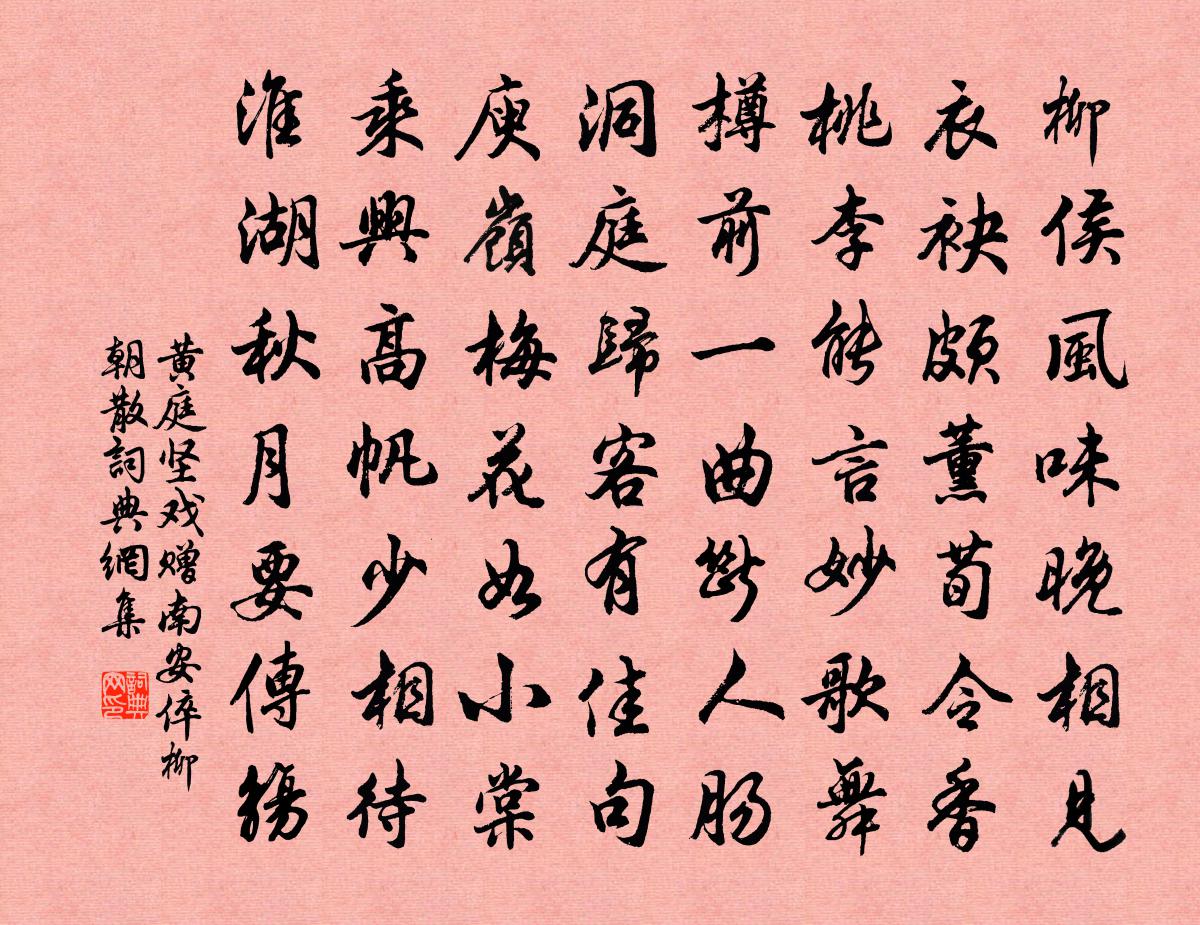 柳侯風味晚相見
衣袂頗薰荀令香
桃李能言妙歌舞
樽前一曲斷人腸
洞庭歸客有佳句
庾嶺梅花如小棠
乘興高帆少相待
淮湖秋月要傳觴
黃庭坚戏赠南安倅柳
朝散詞典網集
詞典网